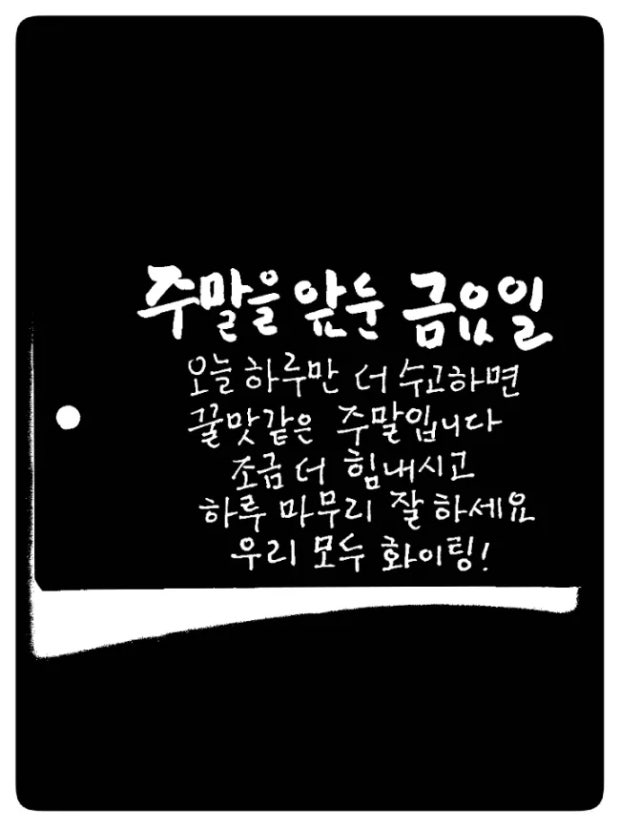 주말을 앞둔 금요일
오늘 하루만 더 수고하면
꿀맛같은 주말입니다
조금 더 힘내시고
하루 마무리 잘 하세요
우리 모두 화이팅!